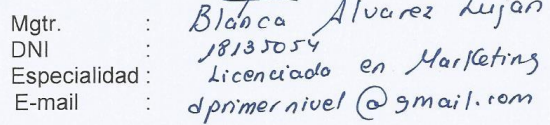 Mgtr. : Blanca Alvarez Lujan
DNI : 18135054
Especialidad : Licenciado en Marketing
E-mail : dprimernivel@gmail.com